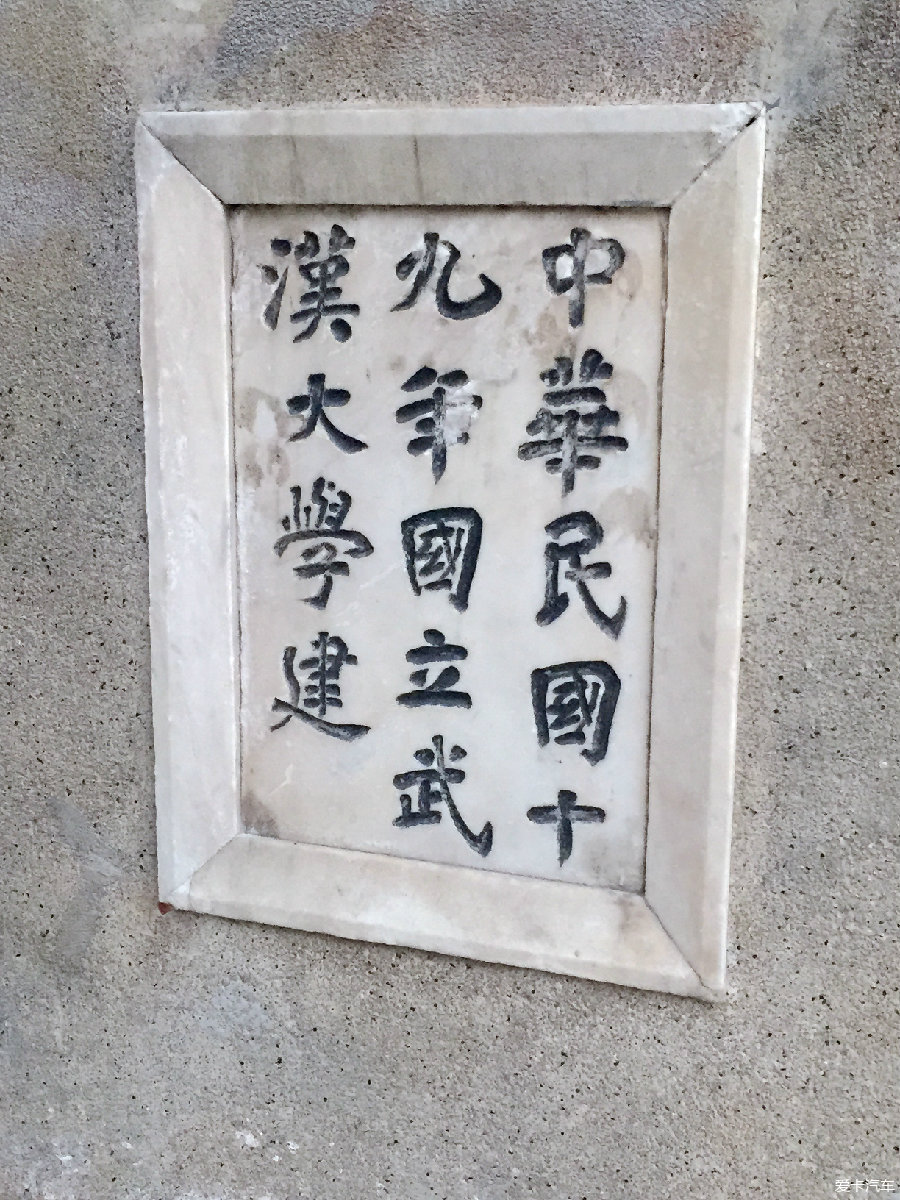 中華民國十
九年國立武
漢大學建
爱卡汽车